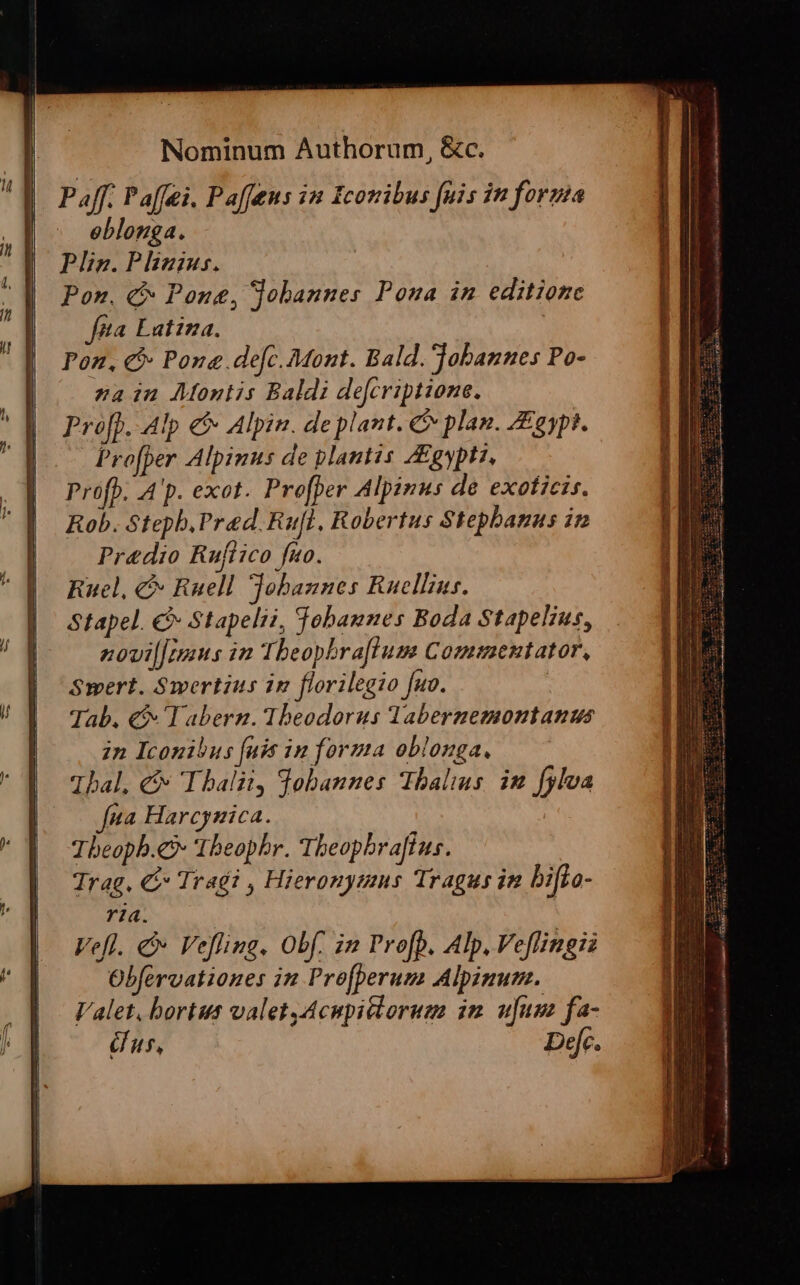 Nominum Authorum, &c.
Paſſ. Paſſæi. Paſſæus in Iconibus ſuis in forma
oblonga.
Plin. Plinius.
Pon. & Ponæ, Johannes Pona in editione
ſua Latina.
Pon. & Ponæ deſc. Mont. Bald. Johannes Po-
na in Montis Baldi deſcriptione.
Proſp. Alp & Alpin. de plant. & plan. Ægypt.
Proſper Alpinus de plantis Ægypti,
Proſp. A'p. exot. Proſper Alpinus de exoticis.
Rob. Steph. Præd. Ruſt. Robertus Stephanus in
Prædio Ruſtico ſuo.
Ruel, & Ruell Johannes Ruellius.
Stapel. & Stapelii, Johannes Boda Stapelius,
noviſſimus in Theophraſtum Commentator,
Swert. Swertius in florilegio ſuo.
Tab. & Tabern. Theodorus Tabernemontanus
in Iconibus ſuis in forma oblonga.
Thal. & Thalii, Johannes Thalius in ſylva
ſua Harcynica.
Theoph. & Theophr. Theophraſtus.
Trag. & Tragi, Hieronymus Tragus in hiſto-
ria.
Veſl. & Veſling. Obſ. in Proſp. Alp. Veſlingii
Obſervationes in Proſperum Alpinum.
Valet. hortus valet, Acupictorum in uſum fa-
ctus, Deſc.